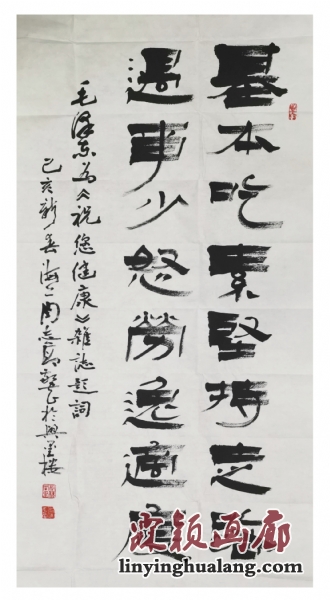 基本吃素坚持走路
遇事少怒劳逸适度
毛泽东为《祝您健康》杂志题词
己亥新春海上周志高书于兴墨楼
霖颖画廊
linyinghualang.com